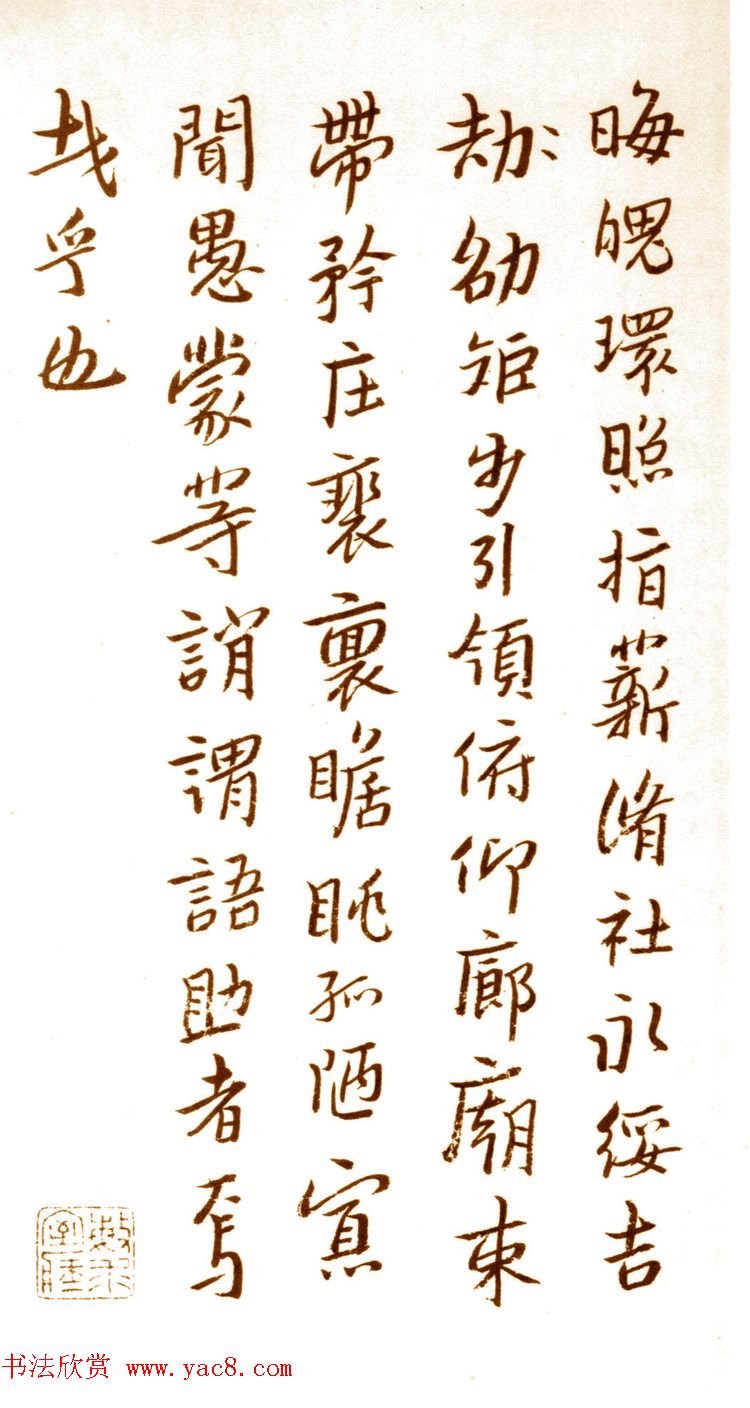 晦魄環照指薪脩社永綏吉
劫劭矩步引領俯仰廊廟束
帶矜庄裵褱瞻眺孤陋寡
聞愚蒙等誚謂語助者焉
哉乎也
书法欣赏 www.yac8.com